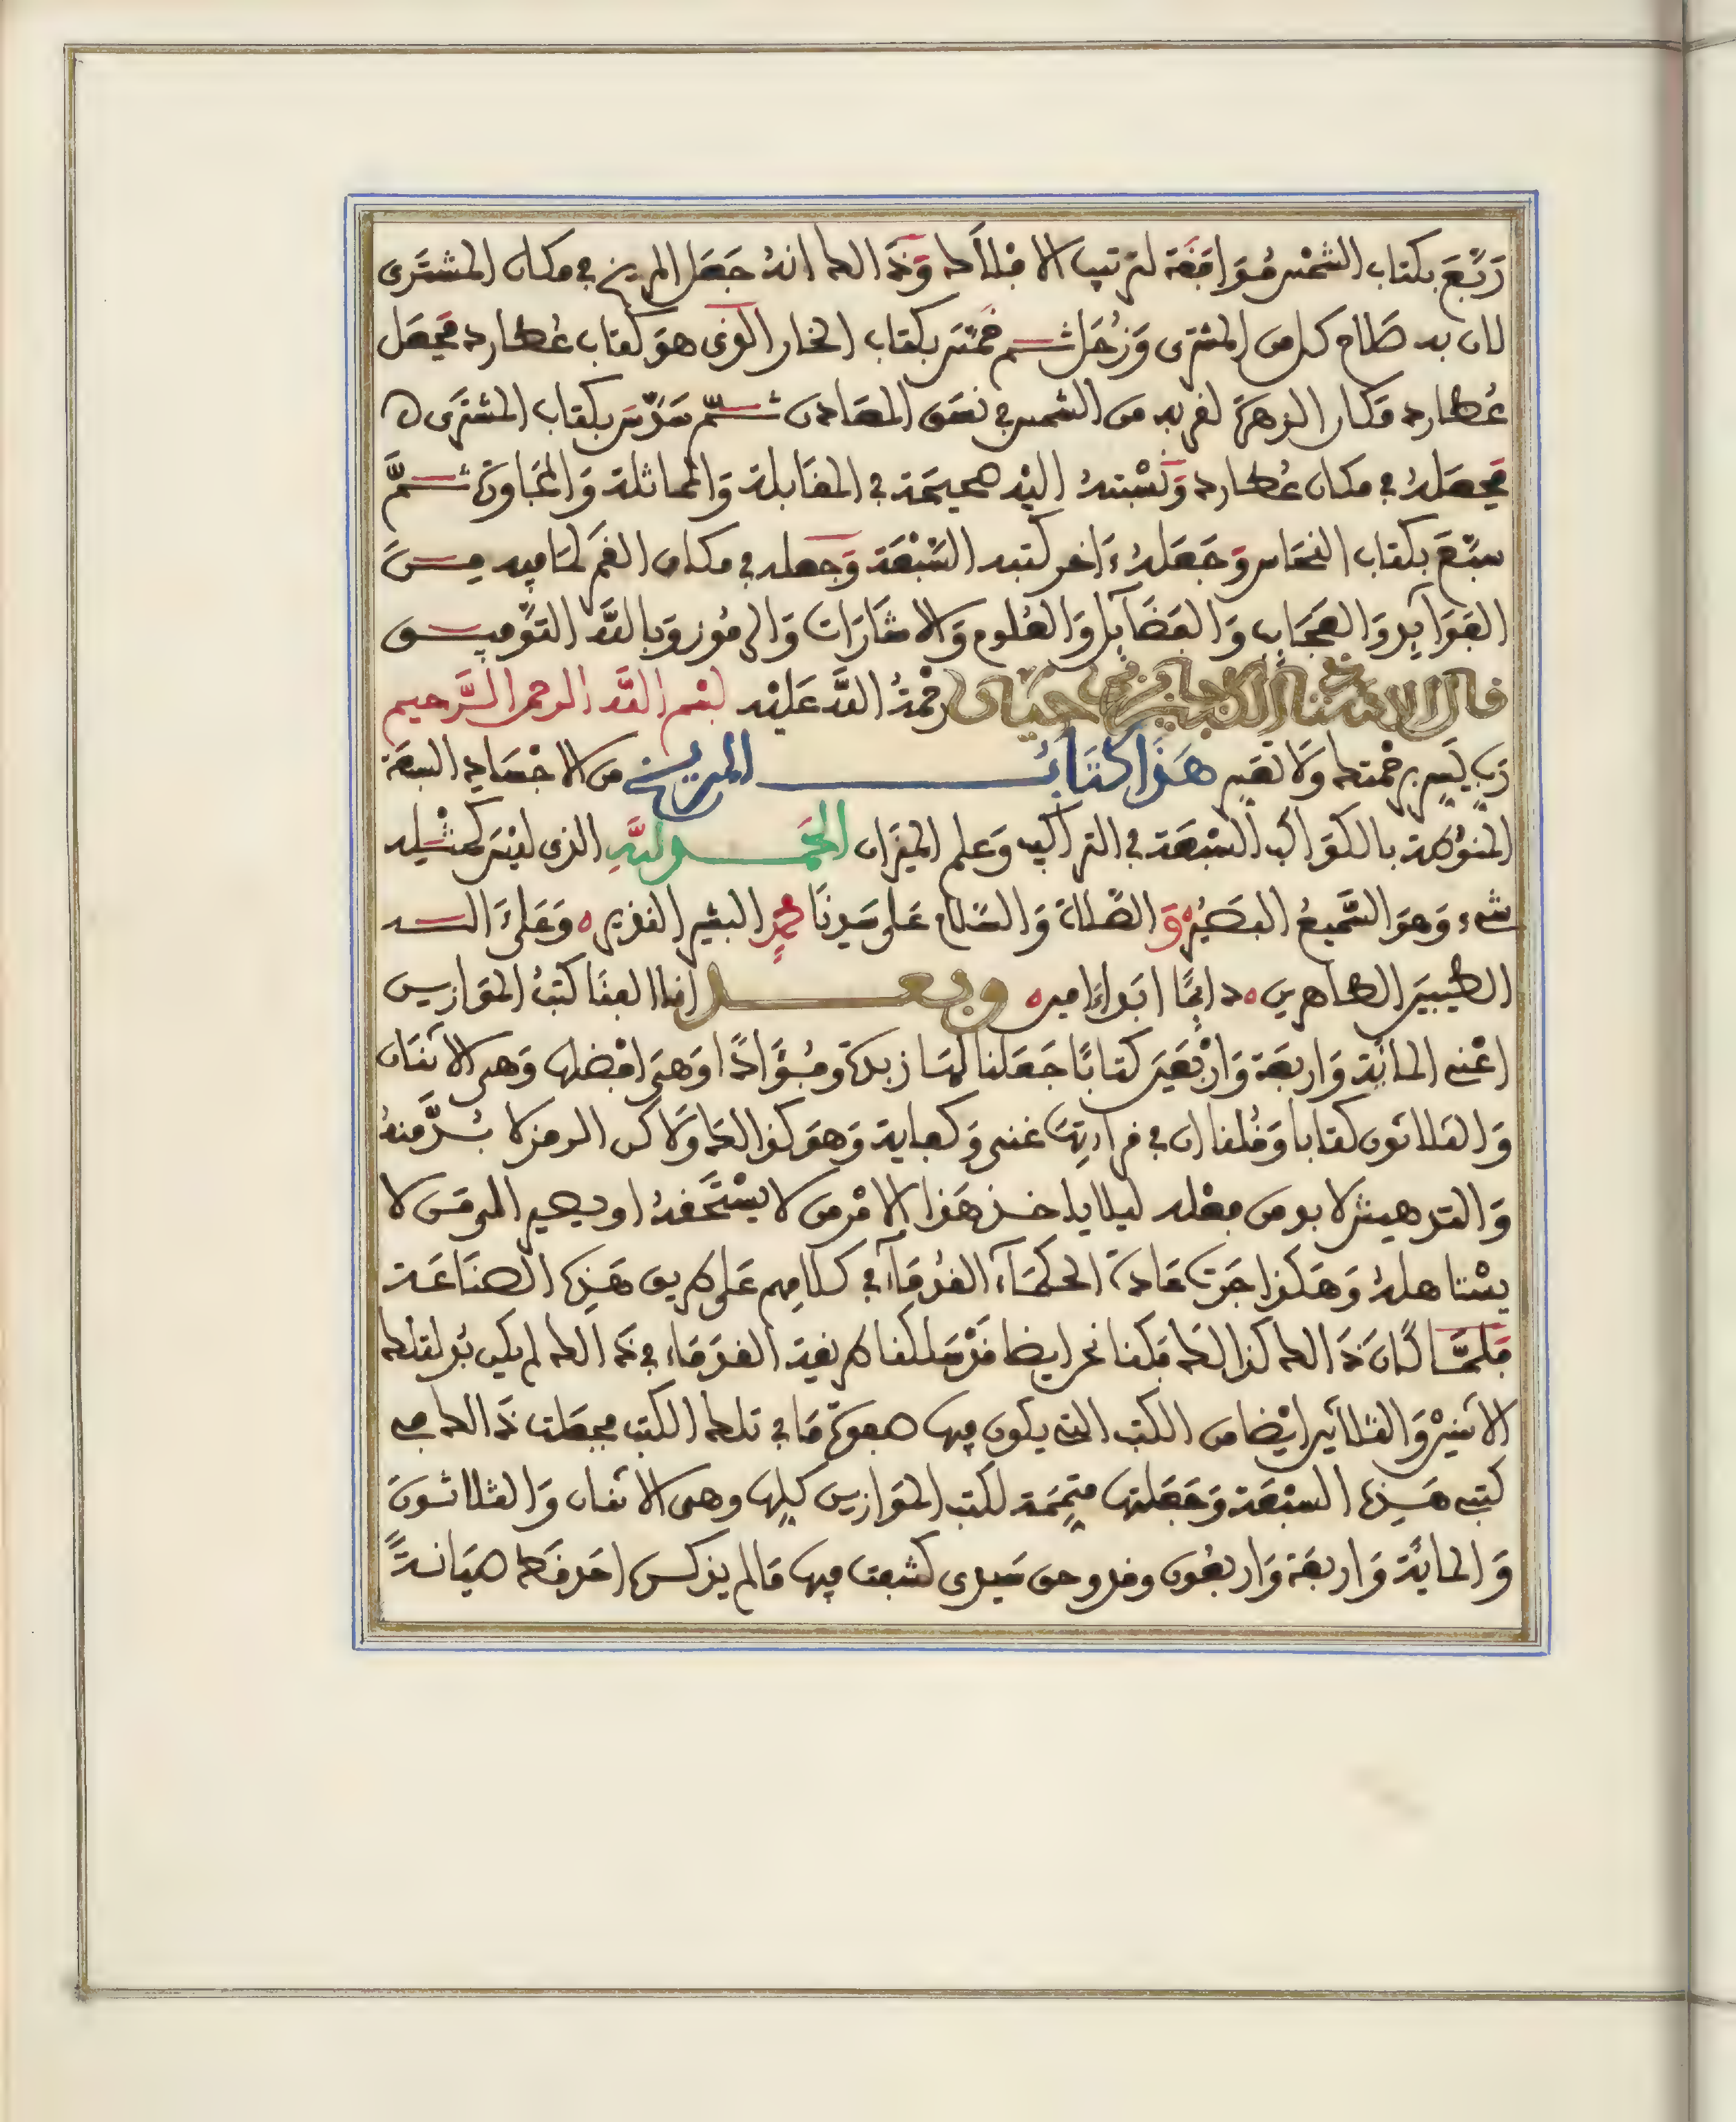 رَبَّعَ بكتاب الشمْس مُوَافَقَة لترتيب الافلاك وَذَالك انهُ جَعَل المريخ في مكان المشتَرى
لان به صَلاح كل من المشترى وَزُحَل ثم خمّسَ بكتاب الخار الذى هوَ كتاب عُطارد فجعَل
عُطارد مَكان الزهرَة لقربه من الشمس في نسَق المعَادن ثم سَدّسَ بكتاب المشتَرى ه
فجعَلهُ في مكان عُطارد وَنسْبتهُ اليْه صحيحَة في المقَابلة وَالمماثلة وَالمجَاوَرة ثمَّ
سبّعَ بكتاب النحَاس وَجَعَلهُ ءَاخر كتبه السّبْعَة وَجَعله في مكان القمَر لمَا فيه مِنَ
الفَوَآيِد وَالعجَايب وَالفضَآيل وَالعُلوم وَالاشَارَات وَالرمُوز وَبالله التوْفيق
قال الاستاذ الكبير جابر بن حيان رَحْمَةُ اللهَّ عَليْه بسْم الله الرحمن الرَّحيم
رَب يَسِّر برحْمتك وَلا تعَسِر هَذَا كتَابُ المريخ من الاجْسَاد السبعَة
المنوُطة بالكوَاكب السّبْعَة في التراكيب وَعلم الميزَان الحَمد للهِ الذى ليْسَ كمثْلِه
شىء وَهوَ السَّميعُ البَصيُر وَالصَّلاة وَالسَّلام عَلى سَيدنَا محمدٍ البشير النذير ه وَعَلى ءَاله
الطيبين الطاهرين ه دايمًا ابَدا ءَامين ه وبعد انا الفنَا كتبُ الموَازين
اعْنى المائة وَاربعَة وَارْبَعينَ كتَابًا جَعَلنا لهَا زبدَة وفُؤَادًا وَهيَ افضلها وَهى الاثنَان
وَالثلاثون كتابا وَقُلنا ان في قراءتِهَا غنى وَكفاية وَهوَ كذالك وَلاكن الرمز لا بُدَّ منهُ
وَالتدهيش لا بد من فعْله ليلا ياخذ هَذا الامْر من لا يسْتَحقهُ او يصير الى من لا
يسْتاهلهُ وَهَكذا جَرَت عَادَة الحكمَاء القُدمَاء في كلامِهم عَلى طريق هَذِه الصنَاعَة
فلمَّا كَانَ ذَالك كذالك وَكنا نحن ايضا قَدْ سَلكنا طريقة القدَمَاء في ذَالك لم يكن بُد لتلك
الاثنيْن وَالثلاثين ايْضا من الكتب التى يكون فيها صفوَة مَا في تلك الكتب فجعَلت ذَالك في
كتبى هَذِه السبْعَة وَجَعَلتها متِممَة لكتب الموَازين كلِها وهى الاثنان وَالثلاثونَ
وَالماية وَاربعَة وَاربعُون وقد وحق سَيدى كشفت فيها مَا لم يذكره احَد قط صيَانةً